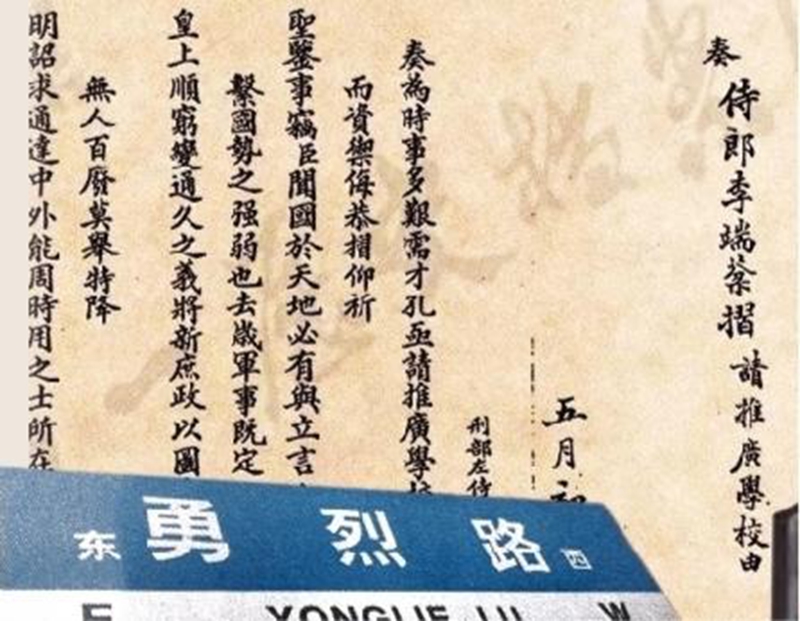 奏
侍郎李端棻摺 請推廣學校由
五月初
刑部左侍
奏為時事多艱需才孔亟請推廣學校
而資禦侮恭摺仰祈
聖鑒事竊臣聞國於天地必有與立言
繫國勢之强弱也去歲軍事既定
皇上順窮變通久之義將新庶政以圖
無人百廢莫舉特降
明詔求通達中外能周時用之士所在
东 勇烈路 西
E YONGLIE LU W